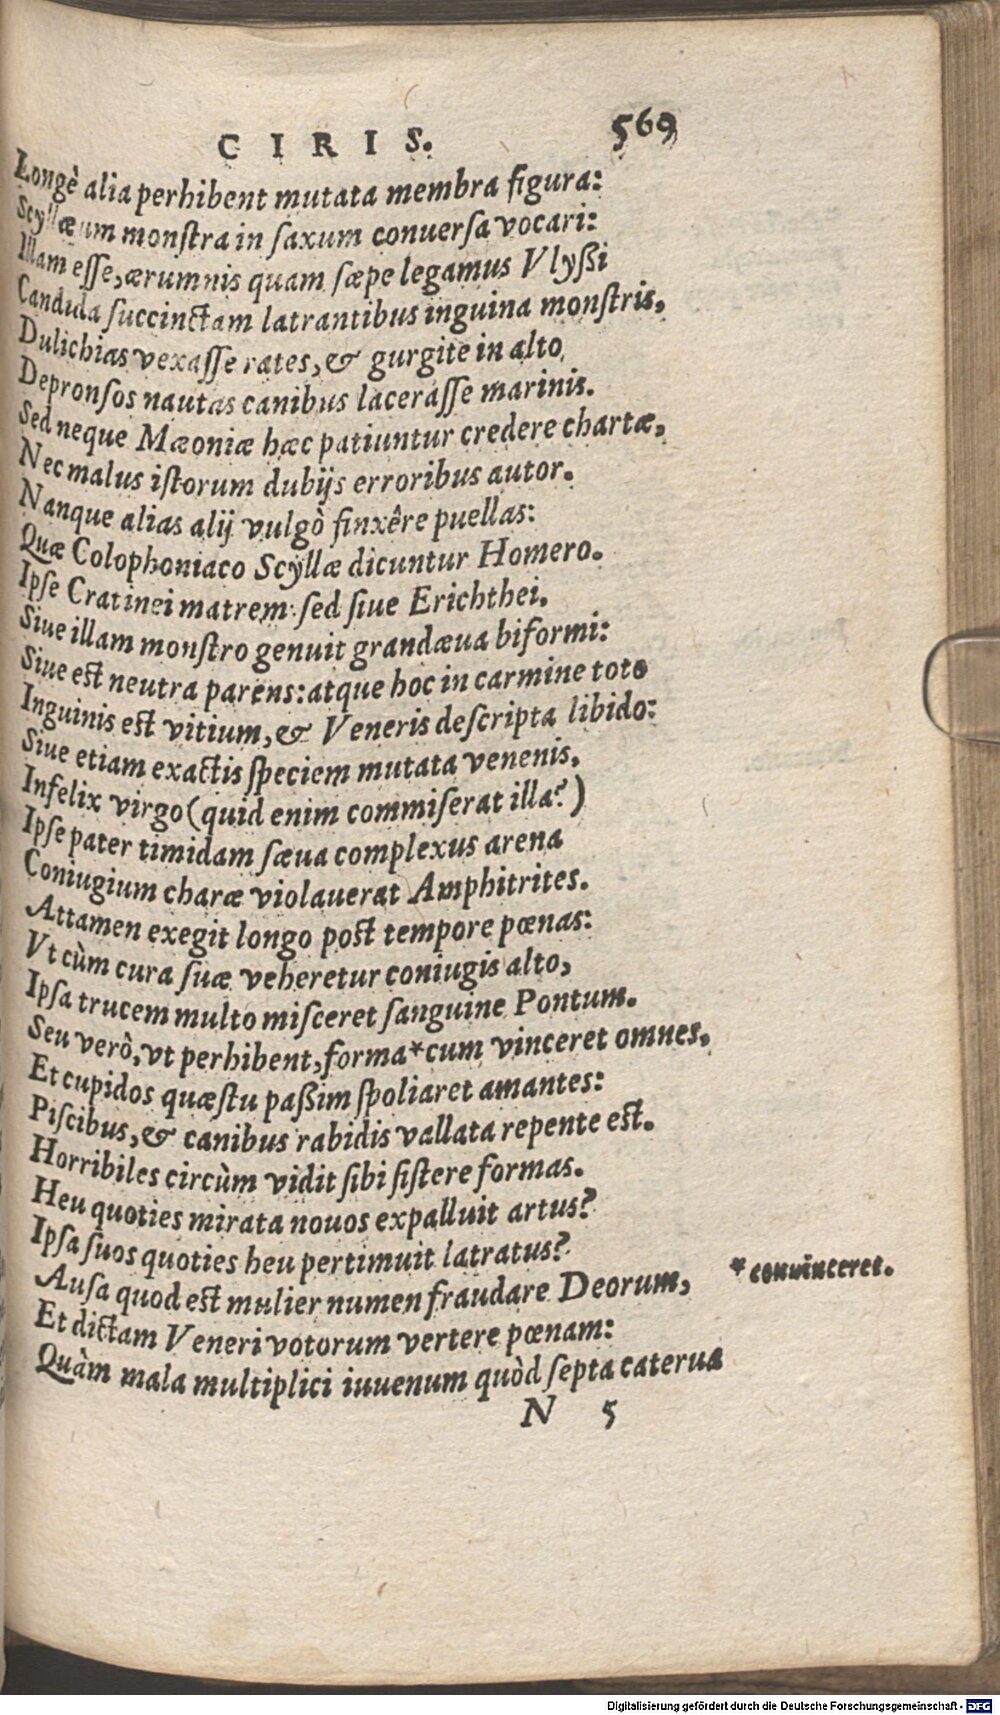 CIRIS. 569
Longè alia perhibent mutata membra figura:
Scyllæum monſtra in ſaxum conuerſa vocari:
Illam eſſe, ærumnis quam ſæpe legamus Vlyßi
Candida ſuccinctam latrantibus inguina monſtris,
Dulichias vexaſſe rates, & gurgite in alto,
Depronſos nautas canibus laceraſſe marinis.
Sed neque Mæoniæ hæc patiuntur credere chartæ,
Nec malus iſtorum dubijs erroribus autor.
Nanque alias alij vulgò finxêre puellas:
Quæ Colophoniaco Scyllæ dicuntur Homero.
Ipſe Cratinei matrem: ſed ſiue Erichthei,
Siue illam monſtro genuit grandæua biformi:
Siue eſt neutra parens: atque hoc in carmine toto
Inguinis eſt vitium, & Veneris deſcripta libido:
Siue etiam exactis ſpeciem mutata venenis,
Infelix virgo (quid enim commiſerat illa? )
Ipſe pater timidam ſæua complexus arena
Coniugium charæ violauerat Amphitrites.
Attamen exegit longo poſt tempore pœnas:
Vt cùm cura ſuæ veheretur coniugis alto,
Ipſa trucem multo miſceret ſanguine Pontum.
Seu verò, vt perhibent, forma*cum vinceret omnes,
Et cupidos quæſtu paßim ſpoliaret amantes:
Piſcibus, & canibus rabidis vallata repente eſt.
Horribiles circùm vidit ſibi ſiſtere formas.
Heu quoties mirata nouos expalluit artus?
Ipſa ſuos quoties heu pertimuit latratus?
* conuinceret.
Auſa quod eſt mulier numen fraudare Deorum,
Et dictam Veneri votorum vertere pœnam:
Quàm mala multiplici iuuenum quòd ſepta caterua
N 5
Digitalisierung gefördert durch die Deutsche Forschungsgemeinschaft - DFG